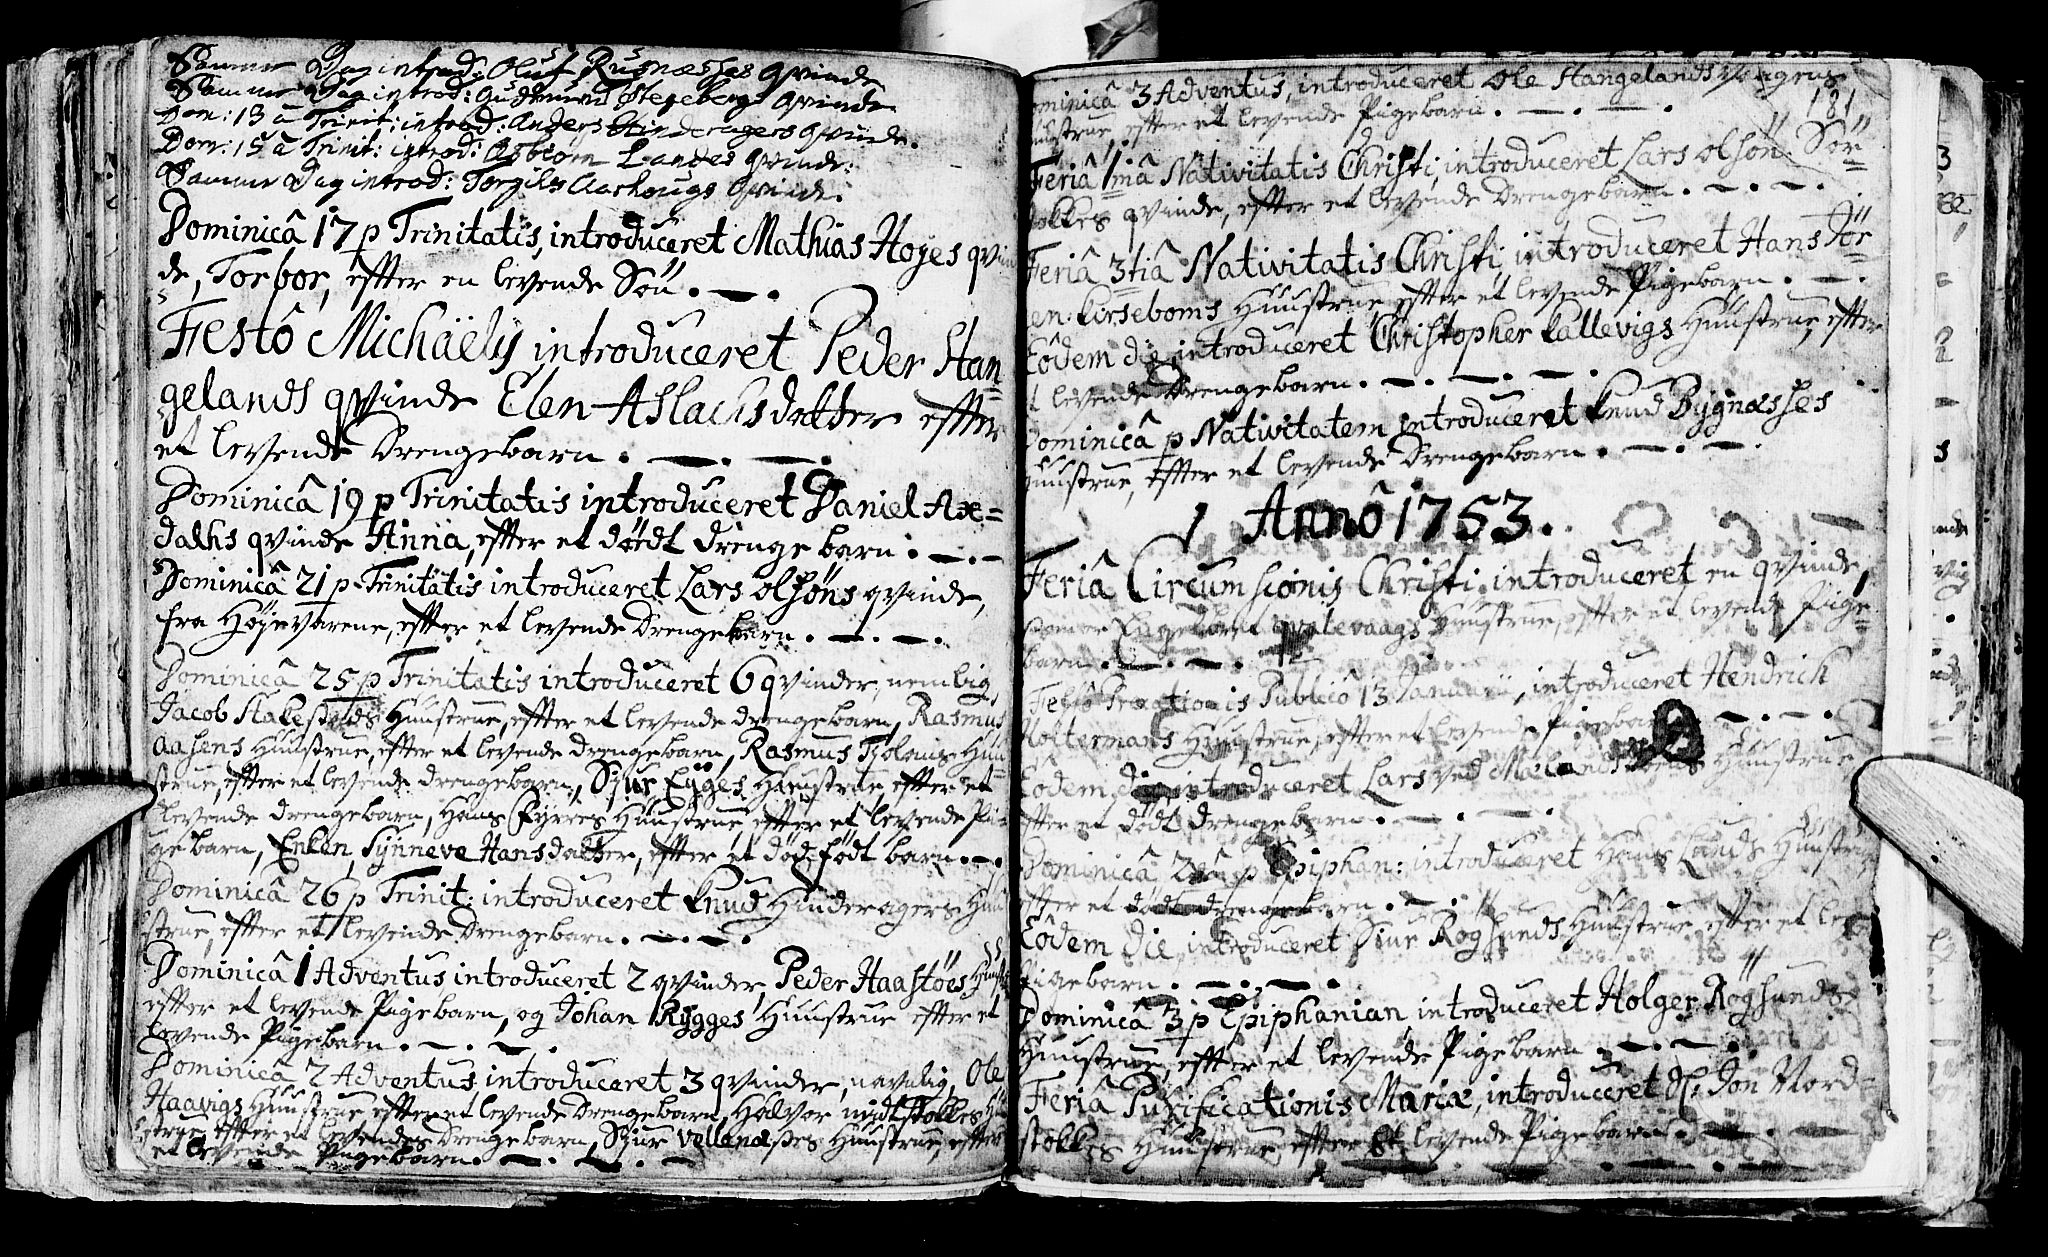 Samme Dag introd: Oluf Rusnæsses Qvinde
Samme Dag introd: Gudmund Stegebergs Qvinde
Dom: 13 à Trinit: introd: Anders Hinderagers Qvinde.
Dom: 15 à Trinit: introd: Asbiørn Landes Qvinde:
Samme Dag introd: Torgils Aarhougs Qvinde.
Dominicâ 17 p Trinitatis, introduceret Mathias Hoÿes qvin
de, Torbor, efter en levende Søn.
Festô Michaëlis introduceret Peder Han=
gelands qvinde Elen Aslachsdatter efter
et levende Drengebarn.
Dominicâ 19 p Trinitatis introduceret Daniel Ax=
dalhs qvinde Anna, efter et dødt drenge barn.
Dominicâ 21 p Trinitatis introduceret Lars olsøns qvinde,
fra Høÿevarene, efter et levende Drengebarn.
Dominicâ 25 p Trinitatis introduceret 6 qvinder, nemlig
Jacob Stakesteds Huustrue, efter et levende drengebarn, Rasmus
Aasens Huustrue, efter et levende drengebarn, Rasmus Tiolans Huu
strue, efter et levende drengebarn, Siur Eÿges Huustrue efter et
levende drengebarn, Hans Fÿrres Huustrue efter et levende Pi=
gebarn, Enken, Sÿnneve Hansdatter, efter et dødfødt barn.
Dominicâ 26 p Trinit: introduceret Knud Hinderagers Huu
strue, efter et levende Drengebarn.
Dominicâ 1 Adventus introduceret 2 qvinder, Peder Haastøes Huust
efter et levende Pigebarn, og Johan Rÿgges Huustrue efter et
levende Pigebarn.
Dominicâ 2 Adventus introduceret 3 qvinder, navnlig, Ole
Haavigs Huustrue efter et levende Drengebarn, Halvor midtstokkes Huu
strue efter et levendes Drengebarn, Siur Vellandses Huustrue, efter
et levende Pigebarn.
ominicâ 3 Adventus, introduceret Ole Hangelands
181
huustrue, efter et levende Pigebarn.
Feriâ 1mâ Nativitatis Christi, introduceret Lars olsøn Sør=
stokkes qvinde, efter et levende Drengebarn.
Feriâ 3tiâ Nativitatis Christi, introduceret Hans Jør=
gen: Kirseboms Huustrue efter et levende Pigebarn.
Eôdem die introduceret Christopher Kallevigs Huustrue, efter
t levende Drengebarn.
Dominicâ p Nativitatem introduceret Knud Bÿgnæsses
huustrue, efter et levende Drengebarn.
Annô 1753.
Feriâ Circumscionis Christi introduceret en qvinde,
som er Engebret qvalevaags Huustrue, efter et levende Pige=
barn.
Festô Præationis Publicô 13 Januarii, introduceret Hendrich
Holtermans Huustrue, efter et levende Pigebarn.
Eôdem die introduceret Lars ved Mælands Huustrue
efter et dødt drengebarn.
Dominicâ 2dâ p Epiphan: introduceret Hans Lands Huustrue
efter et dødt drengebarn.
Eôdem die, introduceret Siur Rogsunds Huustrue efter et le
Pigebarn.
Dominicâ 3 p Epiphanian introduceret Holger Rogsunds
Huustrue, efter et levende Pigebarn.
Feriâ Purificationis Mariæ, introduceret Jon Nord=
stokkes Huustrue efter et levende Pigebarn.